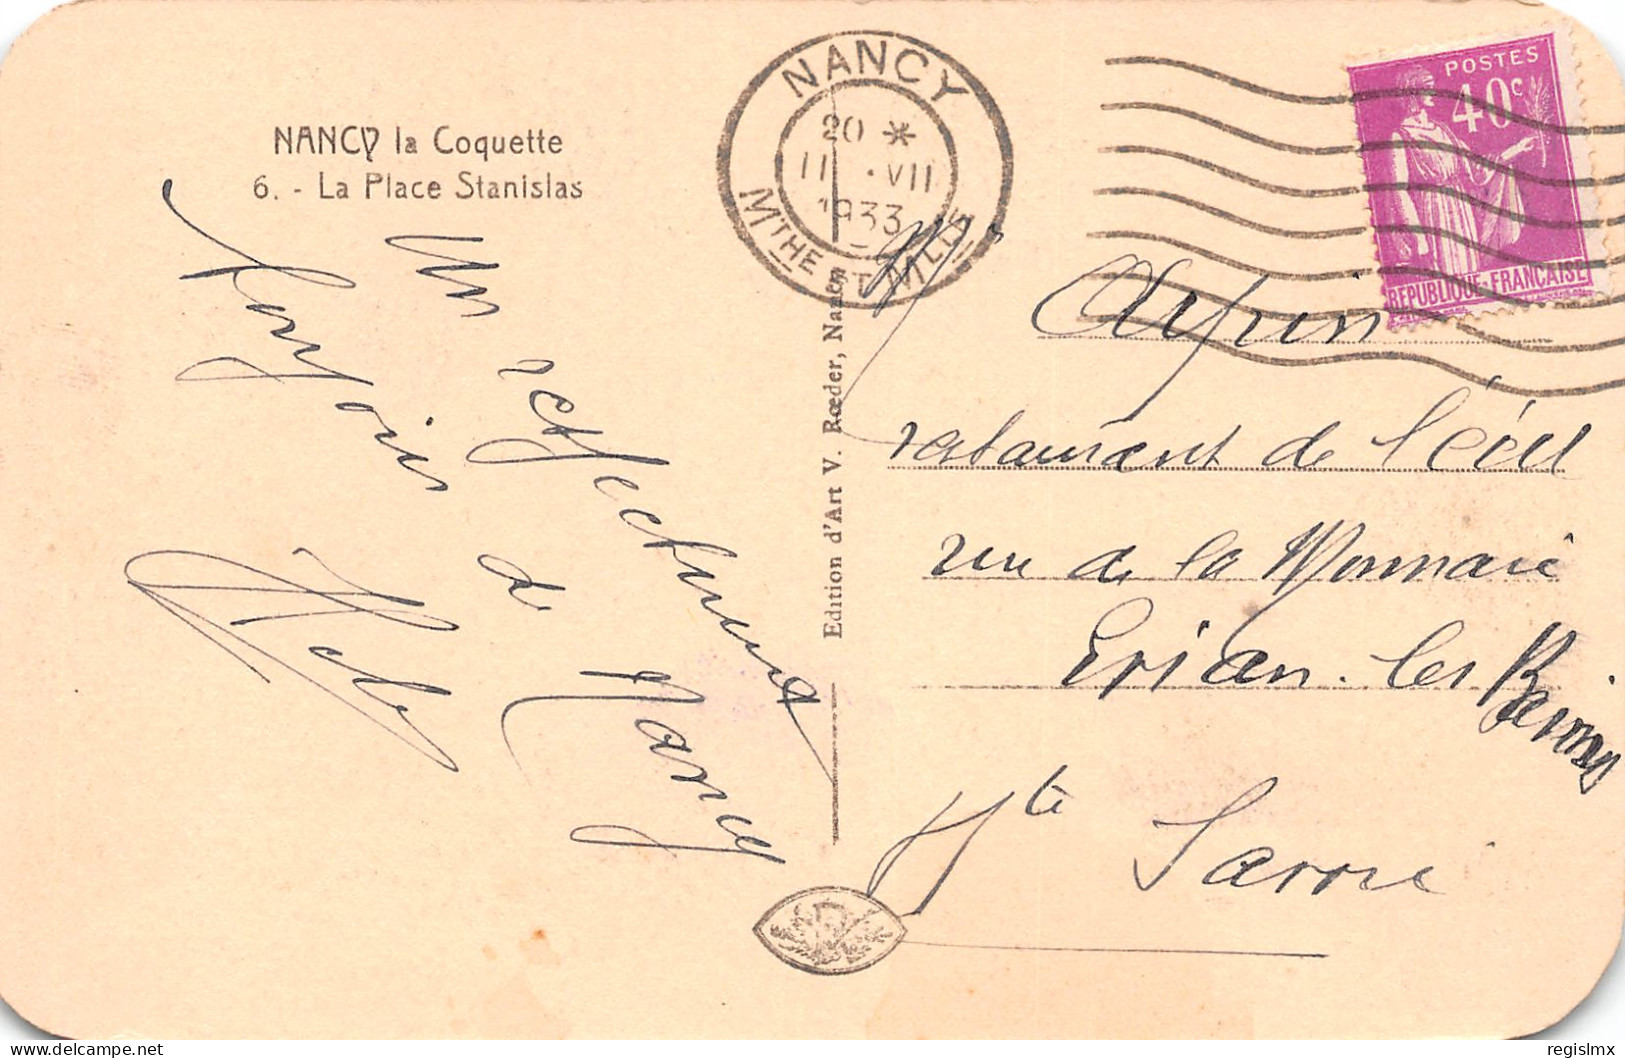 NANCY la Coquette
6. - La Place Stanislas
Un
respectueux
bonjour de Nancy
Edition d'Art V. Rœder, Nancy
NANCY
20 *
11 . VII
1933
MTHE ET MLLE
POSTES
40c
REPUBLIQUE FRANÇAISE
restaurant de l'écu
rue de la Monnaie
Evian-les
Hte Savoie
delcampe.net
regislmx